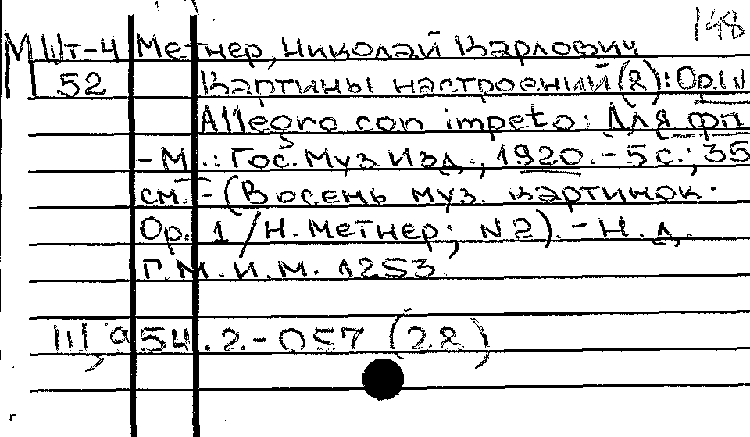 148
М Шт-4 Метнер, Николай Карлович
52 Картины настроений (2): Ор. 1.
Allegro con impeto: Для фп
- М.: Гос. Муз. Изд., 1920. - 5 с.; 35
см. - (Восемь муз. картинок.
Ор. 1 / Н. Метнер; N 2) - Н. д.
Г. М. И. М. 1253
III, а 54.2.-057 (22)